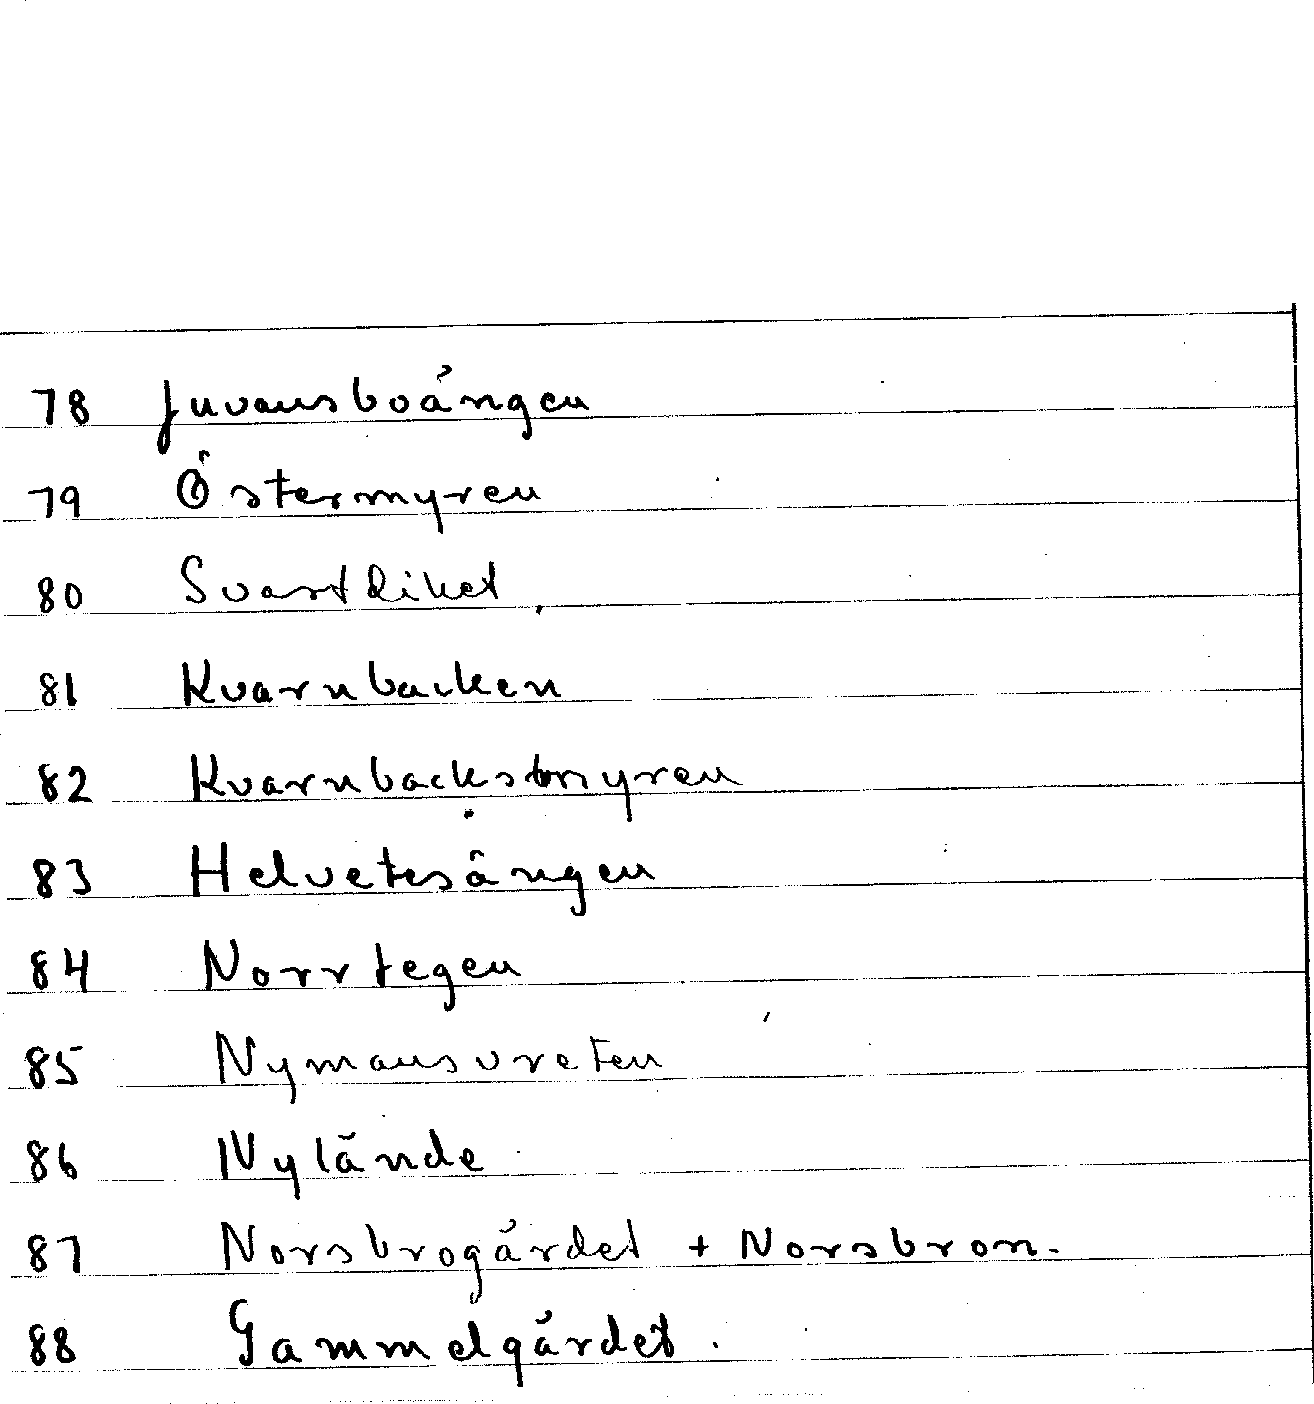 78 Juvansboängen
79 Östermyren
80 Svartdiket
81 Kvarnbacken
82 Kvarnbacksmyren
83 Helvetesängen
84 Norrtegen
85 Nymansvreten
86 Nylände
87 Norsbrogärdet + Norsbron.
88 Gammelgärdet.